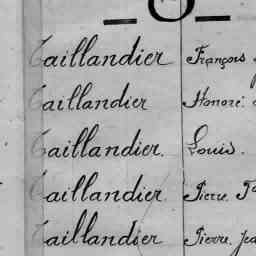 Taillandier François
Taillandier Honoré
Taillandier. Louis.
Taillandier Pierre
Taillandier Pierre, Jea